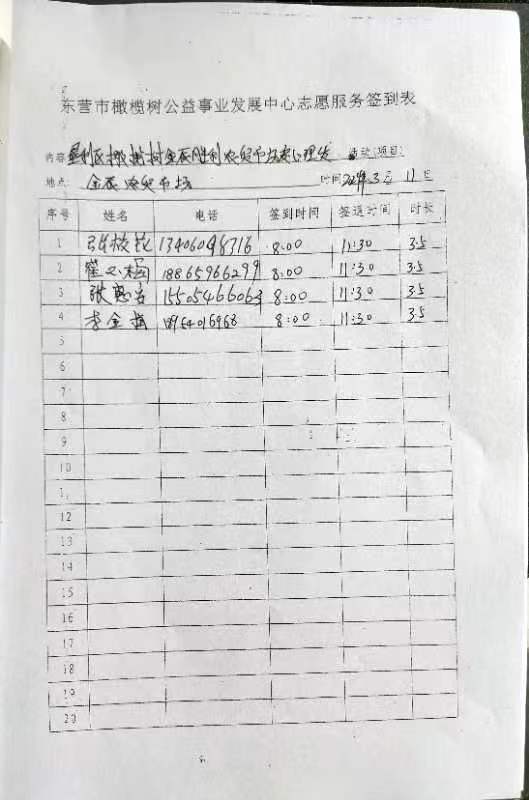 东营市橄榄树公益事业发展中心志愿服务签到表
内容: 垦利区橄榄树金辰胜利农贸市场爱心理发 活动(项目)
地点: 金辰农贸市场 时间 3月11日
序号 姓名 电话 签到时间 签退时间 时长
1 13406048316 8:00 11:30 3.5
2 18865966299 8:00 11:30 3.5
3 张 15505466063 8:00 11:30 3.5
4 李金 8:00 11:30 3.5
5
6
7
8
9
10
11
12
13
14
15
16
17
18
19
20